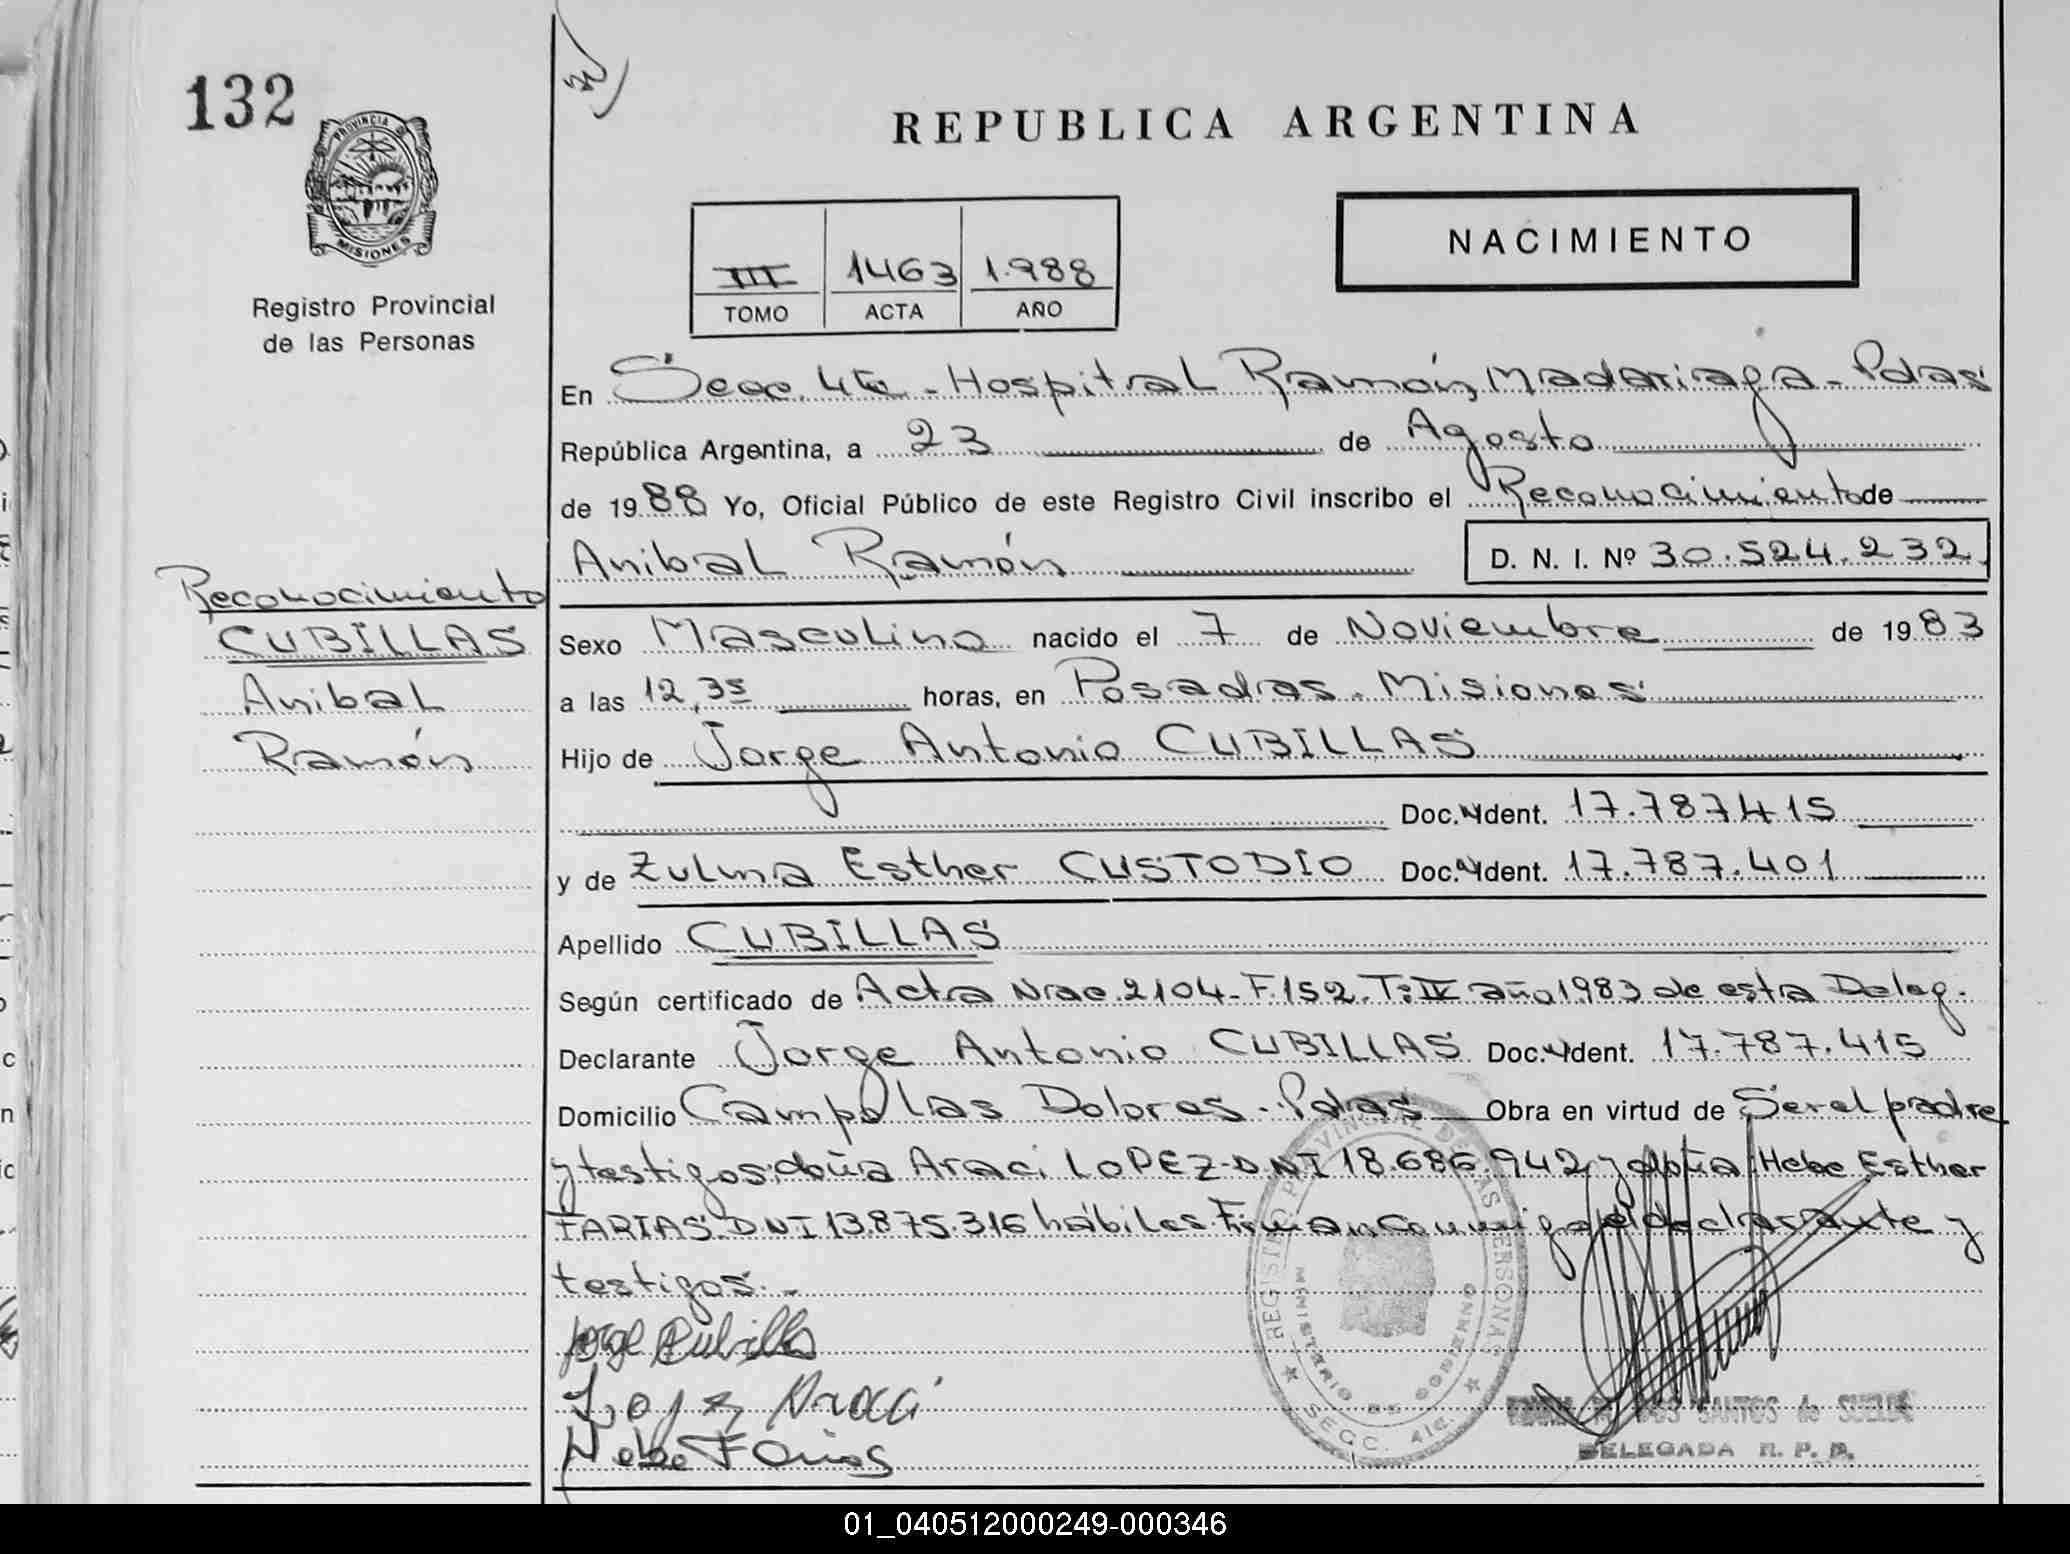 132
PROVINCIA DE
MISIONES
Registro Provincial
de las Personas
REPUBLICA ARGENTINA
III 1463 1.988
TOMO ACTA AÑO
NACIMIENTO
En Secc. 4ta - Hospital Ramón Madariaga - Pdas
República Argentina, a 23 de Agosto
de 1988 Yo, Oficial Público de este Registro Civil inscribo el Reconocimiento de
Anibal Ramón D. N. I. Nº 30.524.232
Reconocimiento
CUBILLAS
Anibal
Ramón
Sexo Masculino nacido el 7 de Noviembre de 1983
a las 12,35 horas, en Posadas. Misiones
Hijo de Jorge Antonio CUBILLAS
Doc. Ident. 17.787.415
y de Zulma Esther CUSTODIO Doc. Ident. 17.787.401
Apellido CUBILLAS
Según certificado de Acta Nro. 2104-F.152.T:IV año 1983 de esta Deleg.
Declarante Jorge Antonio CUBILLAS Doc. Ident. 17.787.415
Domicilio Campo Las Dolores - Pdas Obra en virtud de Ser el padre
y testigos: doña Araci LOPEZ-DNI 18.686.942 y doña Hebe Esther
FARIAS. DNI 13.875.316 hábiles. Firman conmigo el declarante y
testigos.-
Jorge Cubillas
Lopez Aracci
Hebe Farias
REGISTRO PROVINCIAL DE LAS PERSONAS
MINISTERIO DE GOBIERNO
SECC. 4ta.
DOS SANTOS de
DELEGADA R. P. P.
01_040512000249-000346